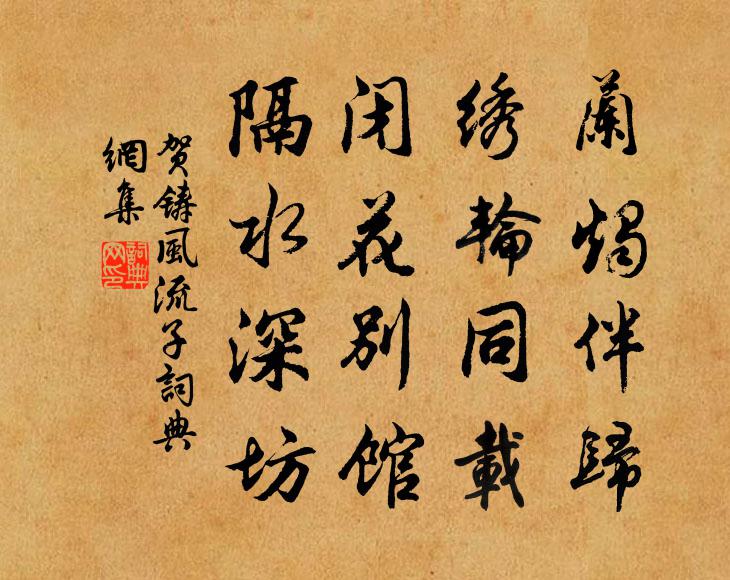 蘭燭伴歸
綉輪同載
閉花別館
隔水深坊
賀鑄風流子詞典
網集
詞典
网印